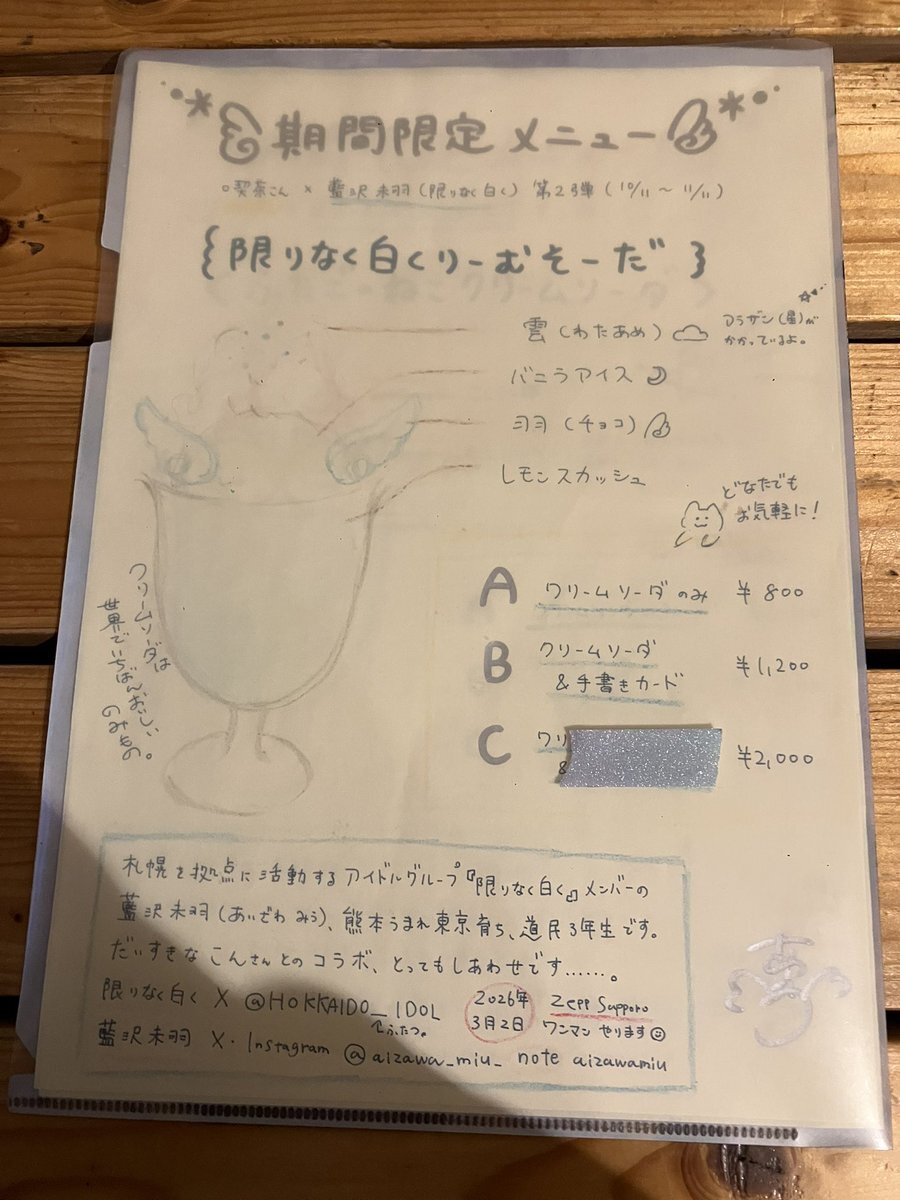 期間限定メニュー
○喫茶こん × 藍沢未羽(限りなく白く) 第2弾(10/11～11/11)
{限りなく白くりーむそーだ}
雲(わたあめ)
アラザン(星)が
かかっているよ。
バニラアイス
羽(チョコ)
レモンスカッシュ
どなたでも
お気軽に!
A クリームソーダのみ ¥800
B クリームソーダ
&手書きカード ¥1,200
C クリ
& ¥2,000
クリームソーダは
世界でいちばんおいしい
のみもの。
札幌を拠点に活動するアイドルグループ『限りなく白く』メンバーの
藍沢未羽(あいざわみう)、熊本うまれ東京育ち、道民3年生です。
だいすきなこんさんとのコラボ、とってもしあわせです……。
限りなく白く X @HOKKAIDO__IDOL
↑ふたつ。
2026年
3月2日
Zepp Sapporo
ワンマンやります
藍沢未羽 X・Instagram @aizawa_miu_ note aizawamiu